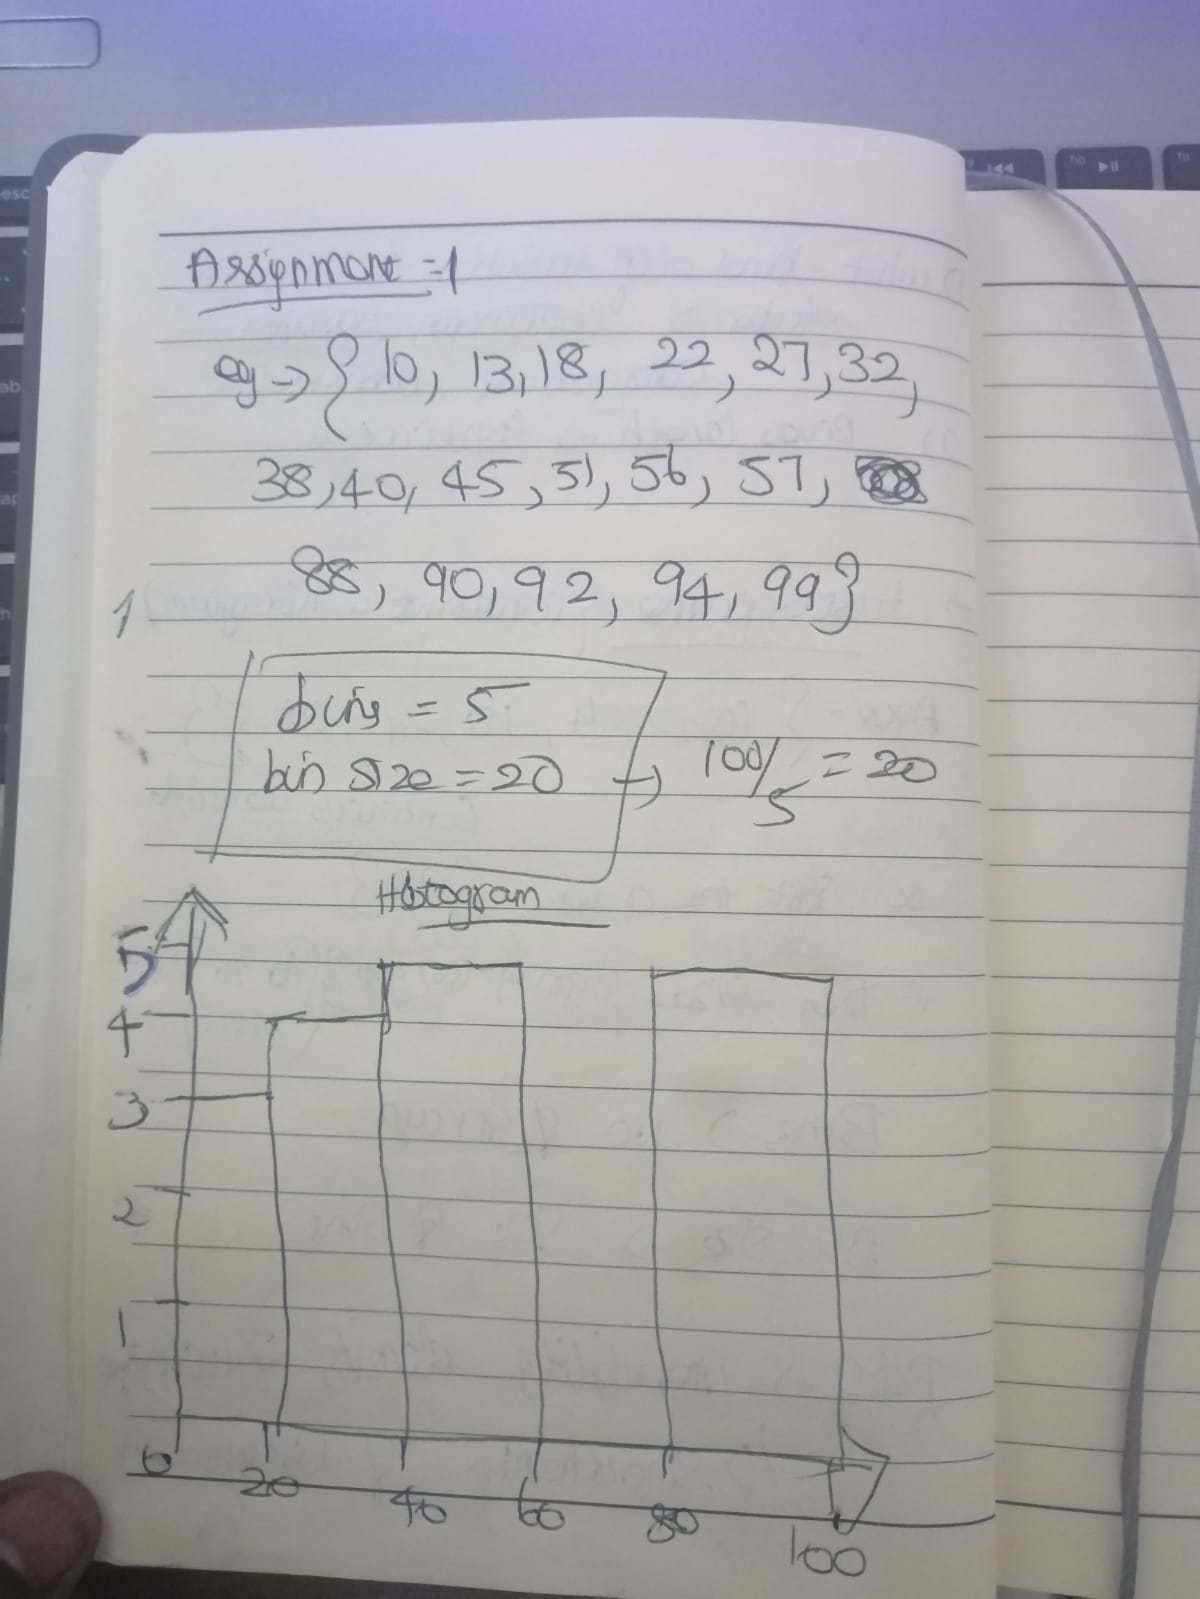 Assignment = 1
eg → { 10, 13, 18, 22, 27, 32,
38, 40, 45, 51, 56, 57,
88, 90, 92, 94, 99 }
1
bins = 5
bin size = 20 → 100/5 = 20
Histogram
5
4
3
2
1
0 20 40 60 80 100